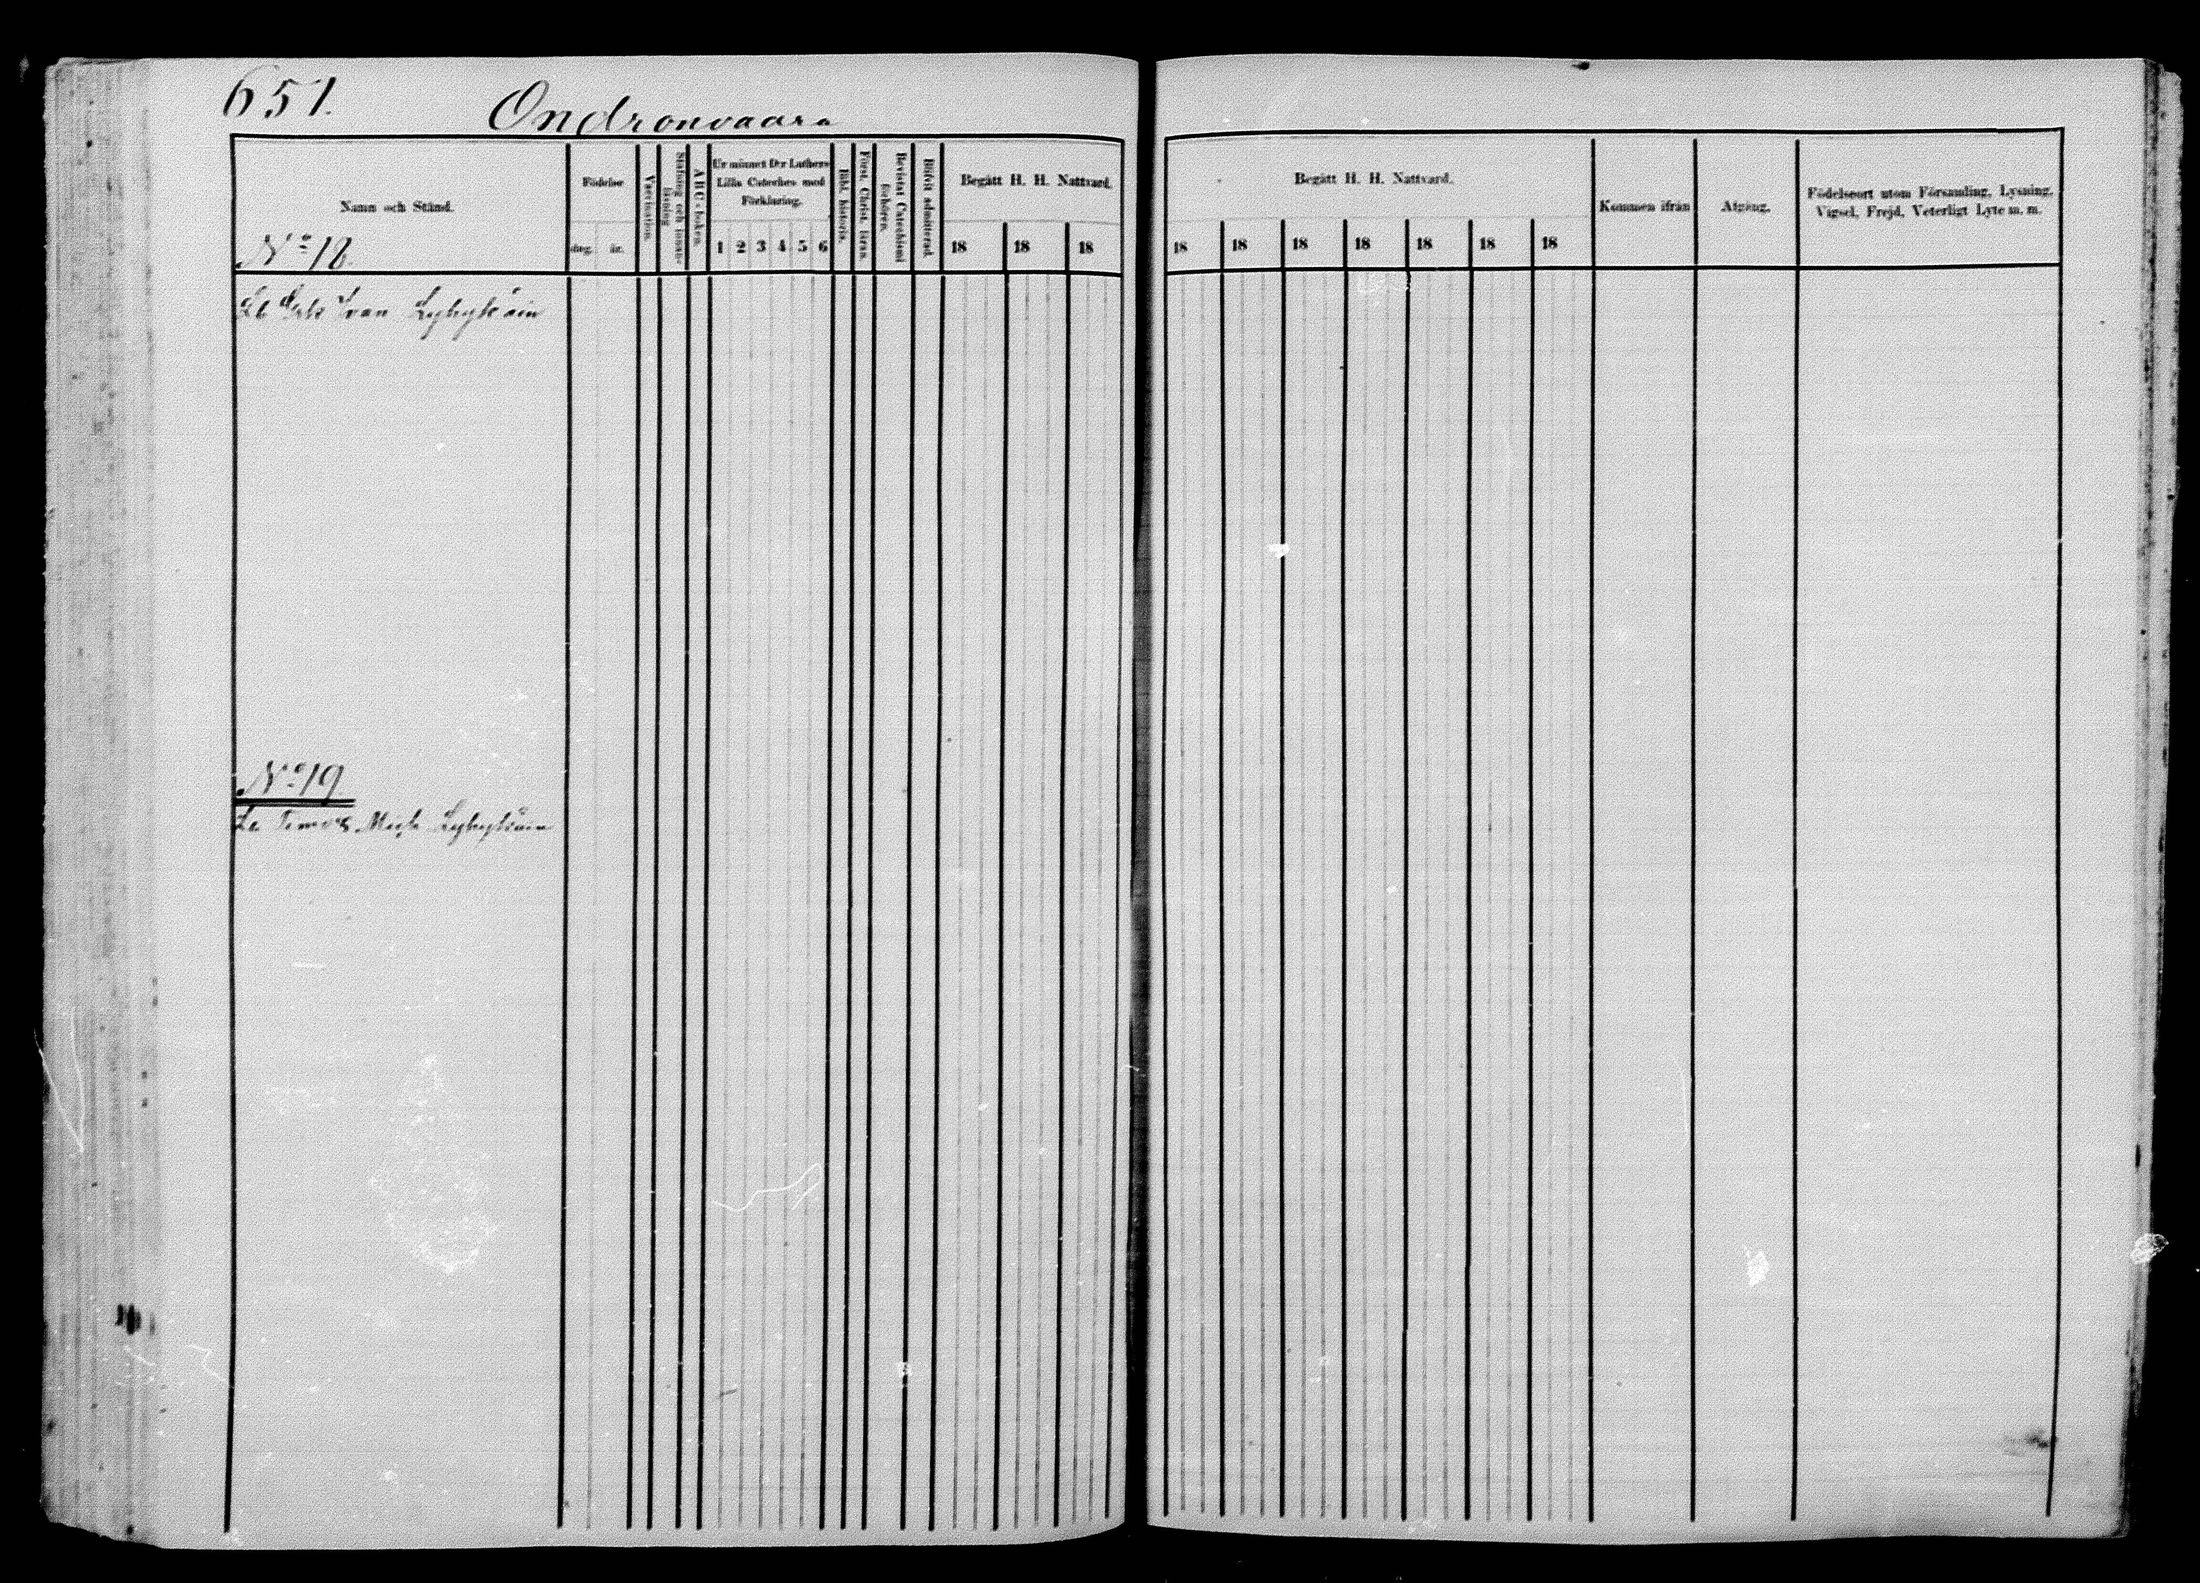 651.
Ondronvaara
Namn och Stånd.
N:o 18.
Födelse
dag. år.
Vaccination.
Stafning och innanläsning
ABC-boken.
Ur minnet Dr Luthers
Lilla Cateches med
Förklaring.
1 2 3 4 5 6
Bibl. historia.
Först. Christ. läran.
Bevistat Catechismi
förhören.
Blifvit admitterad.
Begått H. H. Nattvard.
18 18 18
Begått H. H. Nattvard.
18 18 18 18 18 18 18
Kommen ifrån
Afgång.
Födelseort utom Församling, Lysning,
Vigsel, Frejd, Veterligt Lyte m. m.
Ivan Lyhykäin
N:o 19
Lyhykäin